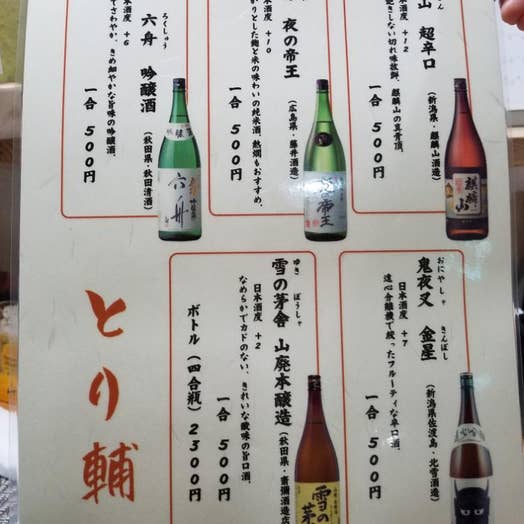 山 超辛口
日本酒度 +12
飽きしない切れ味抜群、麒麟山の真骨頂。
(新潟県・麒麟山酒造)
一合 500円
麒麟山
夜の帝王
日本酒度 +10
かりとした麹と米の味わいの純米酒。熱燗もおすすめ。
(広島県・藤井酒造)
一合 500円
帝王
ろくしゅう
六舟 吟醸酒
日本酒度 +6
でさわやか、きめ細やかな旨味の吟醸酒。
(秋田県・秋田清酒)
一合 500円
六舟
おにやしゃ きんぼし
鬼夜叉 金星
(新潟県佐渡島・北雪酒造)
日本酒度 +7
遠心分離機で搾ったフルーティな辛口酒。
一合 500円
ゆき ぼうしゃ
雪の茅舎 山廃本醸造
(秋田県・齋彌酒造店
日本酒度 +2
なめらかでカドのない、きれいな酸味の旨口酒。
一合 500円
ボトル(四合瓶)2300円
雪の茅
とり輔